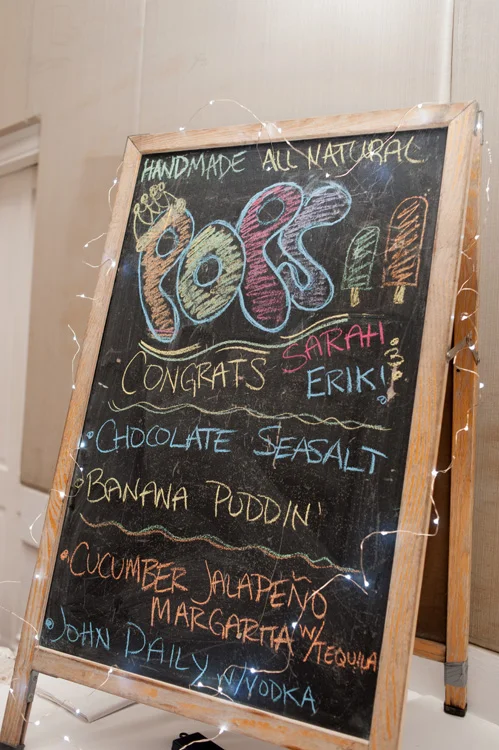 HANDMADE ALL NATURAL
POPS
CONGRATS SARAH & ERIK!
• CHOCOLATE SEASALT
• BANANA PUDDIN'
• CUCUMBER JALAPEÑO
MARGARITA W/TEQUILA
• JOHN DAILY W/VODKA